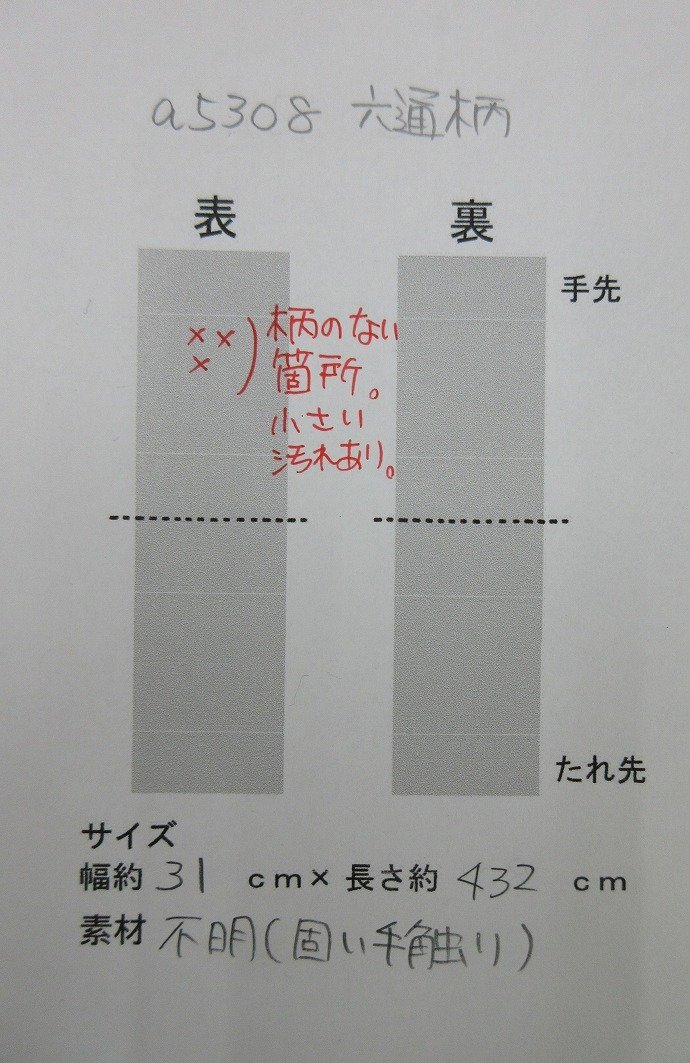 a5308 六通柄
表 裏
手先
×× 柄のない
× 箇所。
小さい
汚れあり。
たれ先
サイズ
幅約 31 cm×長さ約 432 cm
素材 不明(固い手触り)